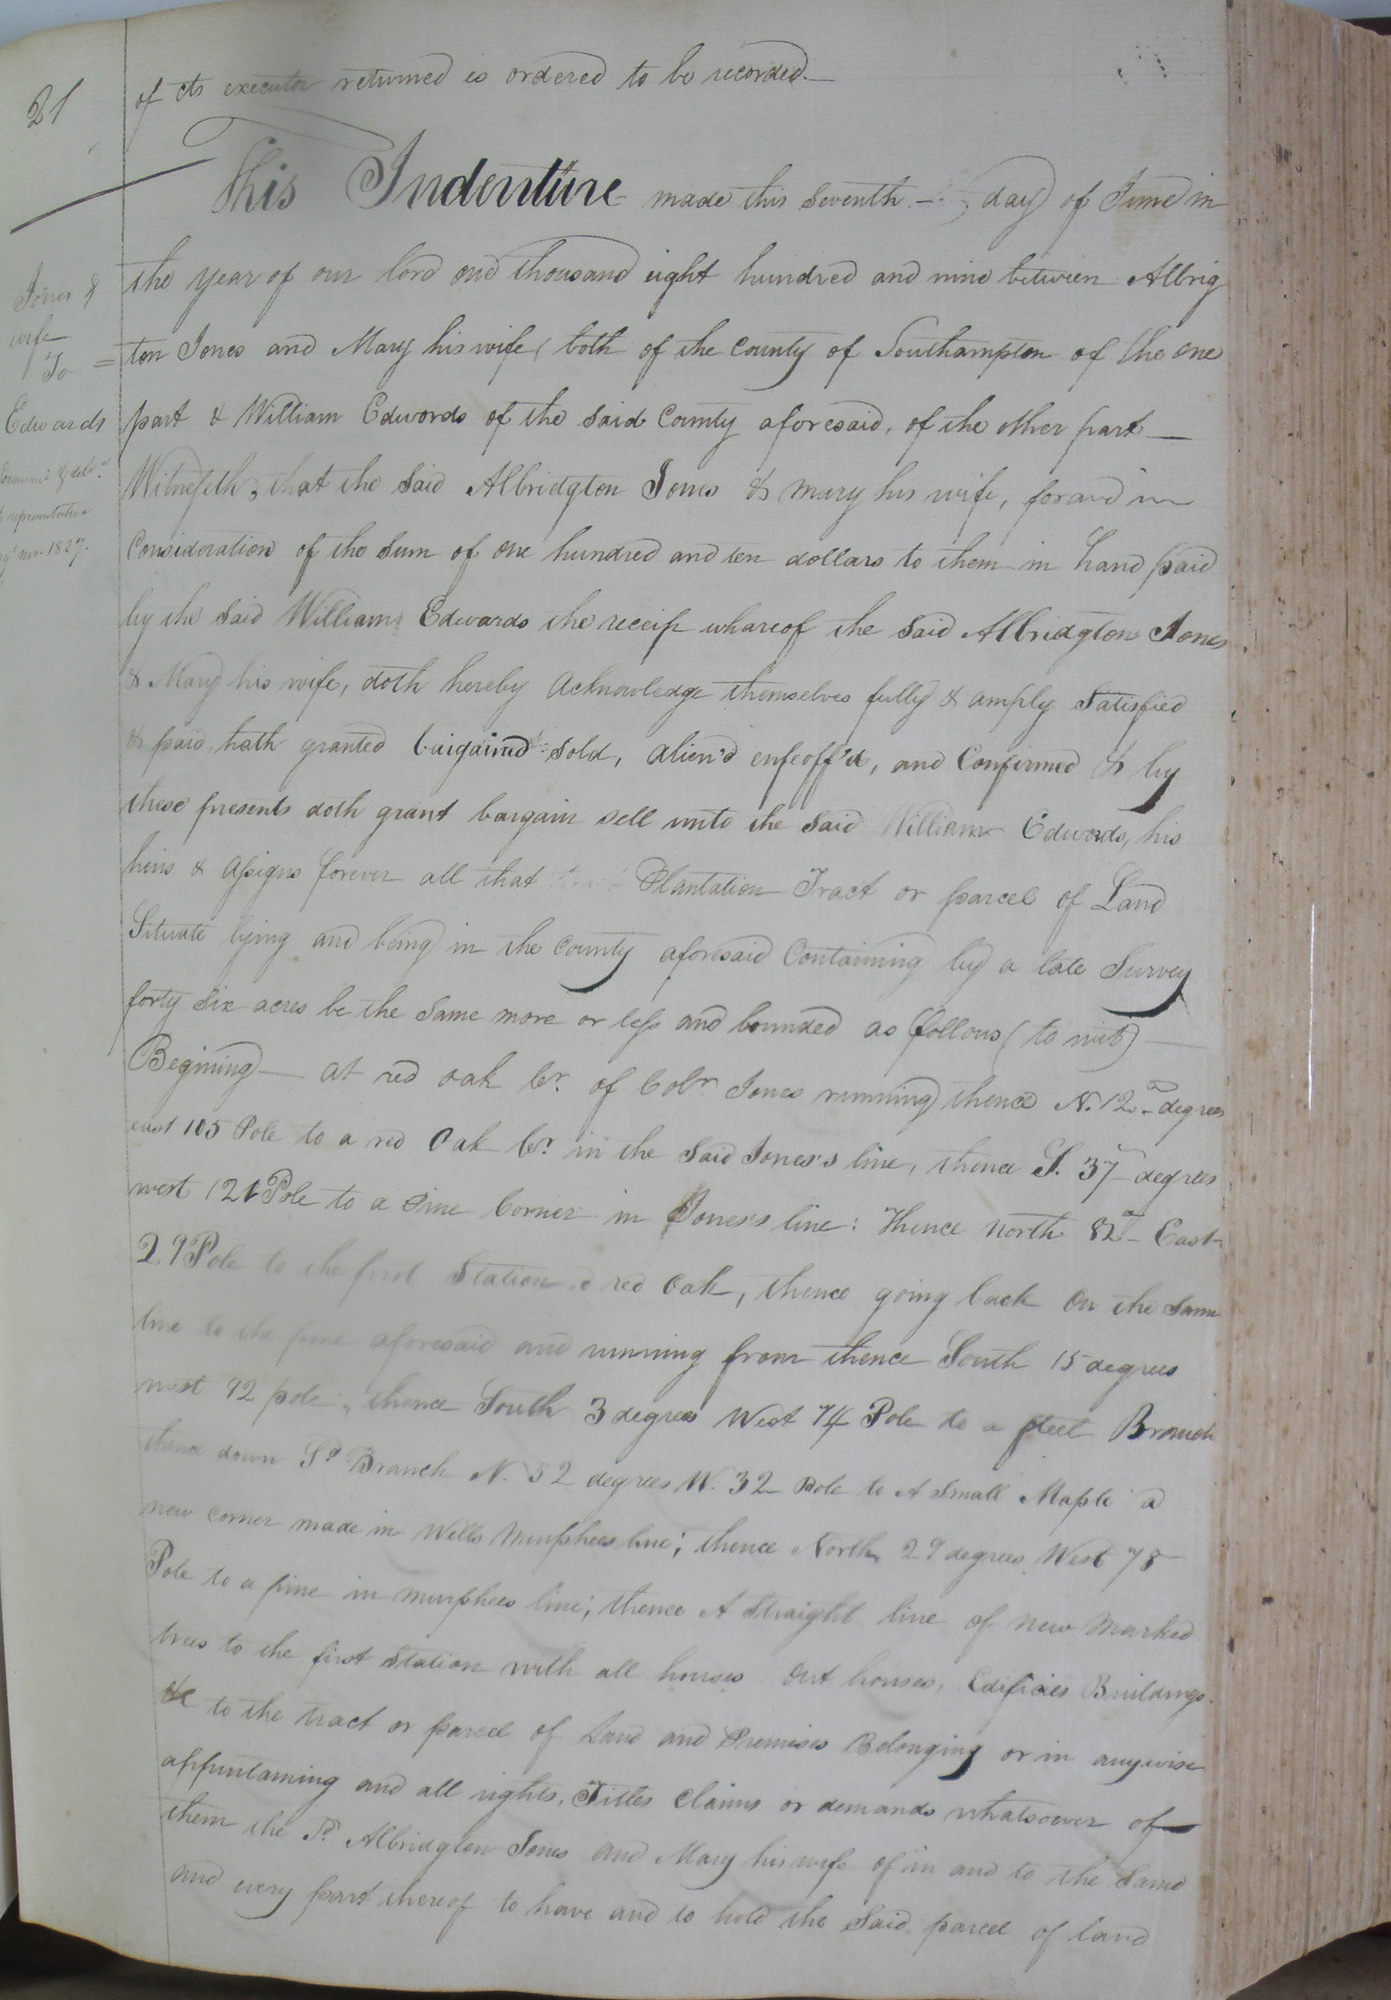 21
of its executor returned is ordered to be recorded.—
This Indenture made this Seventh — day of June in
the year of our lord one thousand eight hundred and nine between Albrig
ton Jones and Mary his wife, both of the County of Southampton of the one
part & William Edwards of the said County aforesaid, of the other part —
Witnesseth, that the said Albridgton Jones & Mary his wife, for and in
Consideration of the sum of one hundred and ten dollars to them in hand paid
by the said William Edwards the receip whareof the said Albridgton Jones
& Mary his wife, doth hereby Acknowledge themselves fully & amply Satisfied
& paid, hath granted bargained sold, alien'd enfeoff'd, and Confirmed & by
these presents doth grant bargain sell unto the said William Edwards, his
heirs & assigns forever all that Plantation Tract or parcel of Land
Situate lying and being in the County aforesaid Containing by a late Survey
forty six acres be the same more or less and bounded as follows (to wit) —
Begining — at red oak Cr. of Jones running thence N. 12 degrees
east 105 Pole to a red Oak Cr. in the said Jones's line, thence S. 37 degrees
west 121 Pole to a Pine Corner in Jones's line: Thence North 82 — East
29 Pole to the first Station a red Oak, thence going back on the same
line to the pine aforesaid and running from thence South 15 degrees
west 92 pole, thence South 3 degrees West 74 Pole to a Branch
thence down Sd. Branch N. 52 degrees W. 32 Pole to A Small Maple a
new corner made in Wells Murphees line; thence North 29 degrees West 78
Pole to a pine in Murphees line; thence A Straight line of new Marked
trees to the first Station with all houses Out houses, Edificies Buildings
&c to the tract or parcel of Land and Premises Belonging or in anywise
appurtaining and all rights, Titles Claims or demands whatsoever of
them the Sd. Albridgton Jones and Mary his wife of in and to the same
and every part thereof to have and to hold the said parcel of land
Jones &
wife
To =
Edwards
1827.